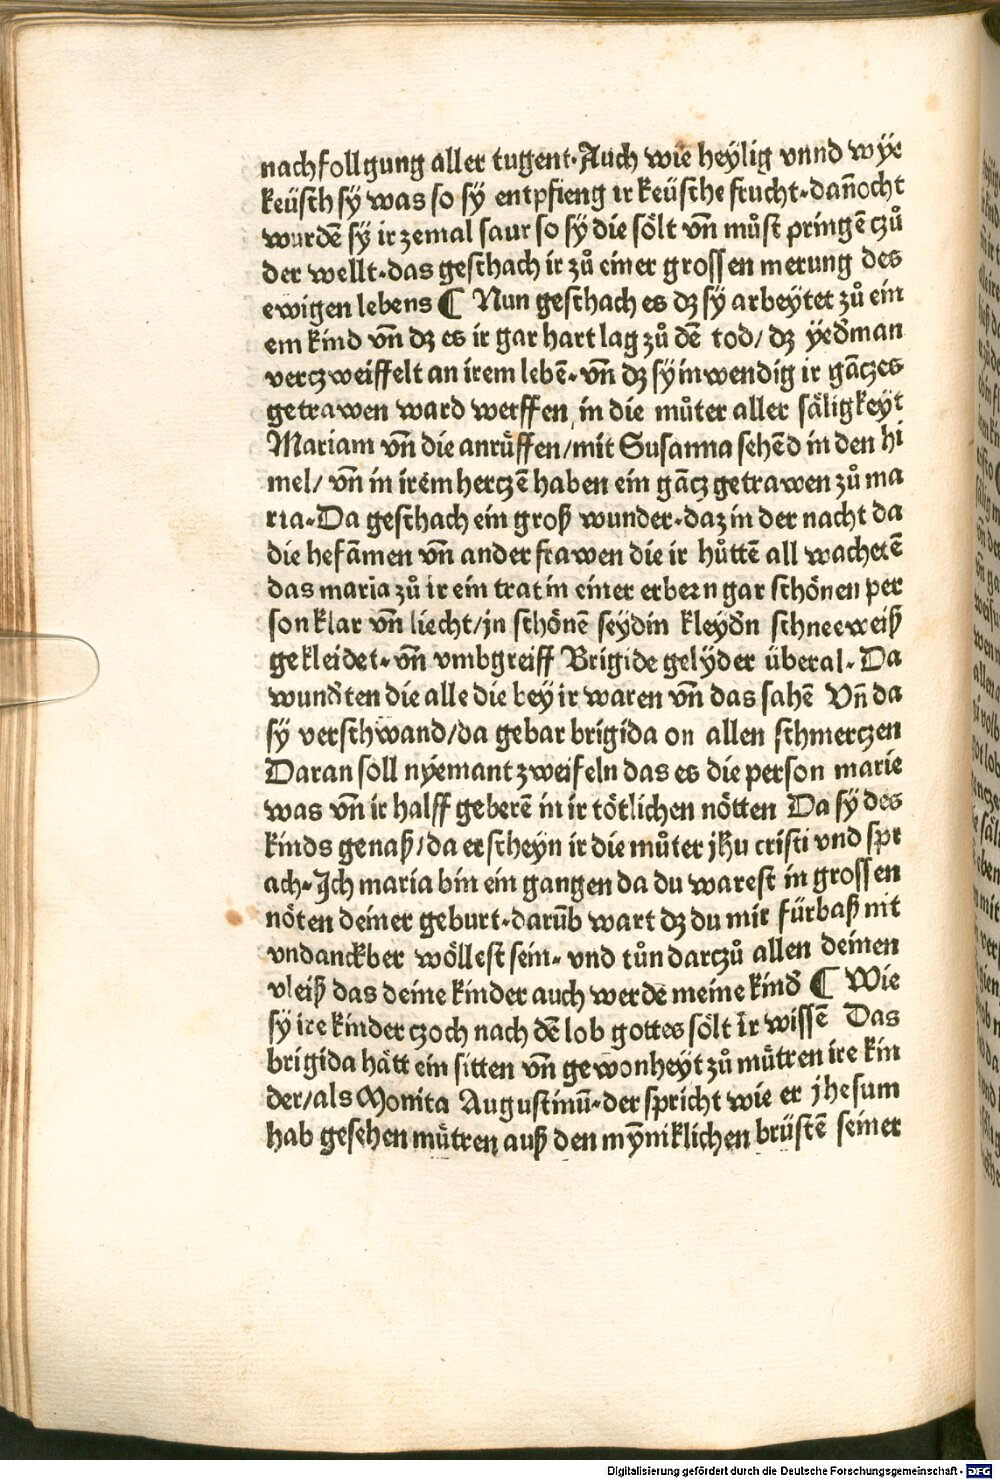 nachfollgung aller tugent. Auch wie heylig vnnd wye
keüsch sÿ was so sÿ entpfieng ir keüsche frucht. dañocht
wurdē sÿ ir zemal saur so sÿ die sölt vn̄ můst pringē czů
der wellt. das geschach ir zů einer grossen merung des
ewigen lebens ¶ Nun geschach es dz sÿ arbeytet zů ein
em kind vn̄ dz es ir gar hart lag zů dē tod/ dz yed̕man
verczweiffelt an irem lebē. vn̄ dz sÿ inwendig ir gāczes
getrawen ward werffen in die můter aller säligkeyt
Mariam vn̄ die anrůffen/mit Susanna sehēd in den hi
mel/ vn̄ in irēm herczē haben ein gācz getrawen zů ma
ria. Da geschach ein groß wunder. daz in der nacht da
die hefāmen vn̄ ander frawen die ir hůttē all wachetē
das maria zů ir ein trat in einer erbern gar schönen per
son klar vn̄ liecht/jn schönē seÿdin kleyd̕n schneeweiß
gekleidet. vn̄ vmbgreiff Brigide gelÿder überal. Da
wund̕ten die alle die bey ir waren vn̄ das sahē Vn̄ da
sÿ verschwand/da gebar brigida on allen schmerczen
Daran soll nyemant zweifeln das es die person marie
was vn̄ ir halff geberē in ir tötlichen nötten Da sÿ des
kinds genaß/da erscheyn ir die můter jhu cristi vnd spr
ach. Ich maria bin ein gangen da du warest in grossen
nöten deiner geburt. darūb wart dz du mir fürbaß nit
vndanckber wöllest sein. vnd tůn darczů allen deinen
vleiß das deine kinder auch werdē meine kind̕ ¶ Wie
sÿ ire kinder czoch nach dē lob gottes sölt ir wissē Das
brigida hätt ein sitten vn̄ gewonheyt zů můtren ire kin
der/als Monita Augustinū. der spricht wie er jhesum
hab gesehen můtren auß den mȳniklichen brüstē seiner
Digitalisierung gefördert durch die Deutsche Forschungsgemeinschaft - DFG